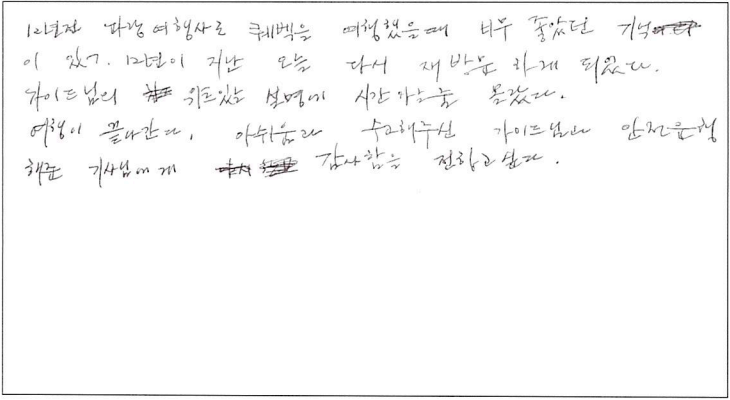 12년전 파랑여행사로 퀘벡을 여행했을때 너무 좋았던 기억
이 있기. 12년이 지난 오늘 다시 재방문 하게 되었다.
가이드님의 위트있는 설명에 시간가는줄 몰랐다.
여행이 끝나간다. 아쉬움과 수고해주신 가이드님과 안전운행
해준 기사님에게 감사함을 전하고싶다.